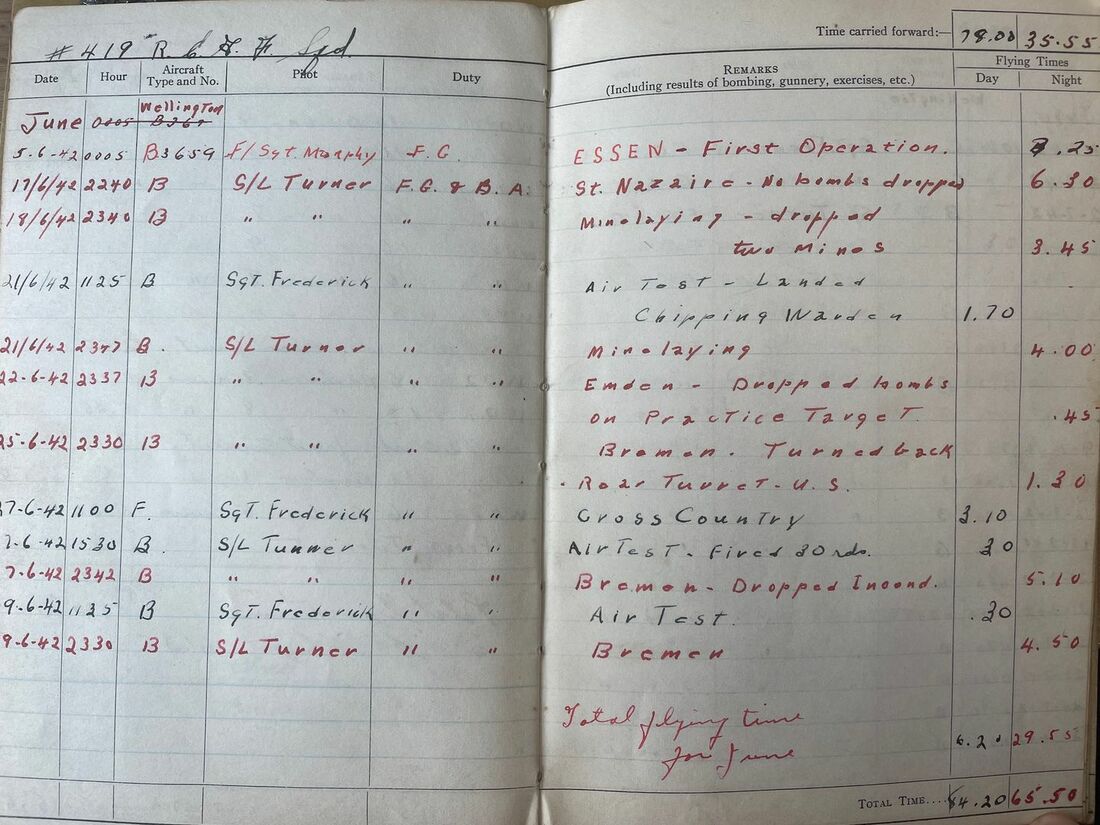 # 419 R C A F Sqd.
Time carried forward:— 78.00 35.55
Date Hour Aircraft Type and No. Pilot Duty REMARKS (Including results of bombing, gunnery, exercises, etc.) Flying Times Day Night
Wellington
June 0005 B367
5-6-42 0005 B3659 F/Sgt. Murphy F.G. ESSEN - First Operation. .25
17/6/42 2240 B S/L Turner F.G. & B.A. St. Nazaire - No bombs dropped 6.30
18/6/42 2340 B " " " " Minelaying - dropped
two Mines 3.45
21/6/42 1125 B SgT. Frederick " " Air Test - Landed
Chipping Warden 1.70
21/6/42 2347 B. S/L Turner " " Minelaying 4.00
22-6-42 2337 B " " " " Emden - Dropped bombs
on Practice Target .45
25-6-42 2330 B " " " " Bremen. Turned back
- Rear Turret - U.S. 1.30
7-6-42 1100 F. SgT. Frederick " " Cross Country 3.10
7-6-42 1530 B. S/L Tunner " " Air Test - Fired 30 rds. 30
7-6-42 2342 B " " " " Bremen - Dropped Incend. 5.10
9-6-42 1125 B SgT. Frederick " " Air Test. .30
9-6-42 2330 B S/L Turner " " Bremen 4.50
Total flying time
for June 6.20 29.55
TOTAL TIME.... 84.20 65.50